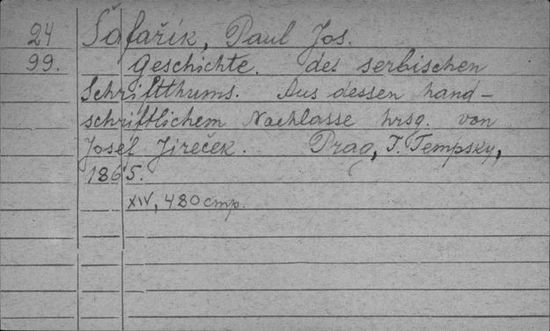 24 Šafařík, Paul Jos.
99. Geschichte des serbischen
Schriftthums. Aus dessen hand-
schriftlichem Nachlasse hrsg. von
Josef Jireček. Prag, F. Tempsky,
1865.
XIV, 480 cmp.